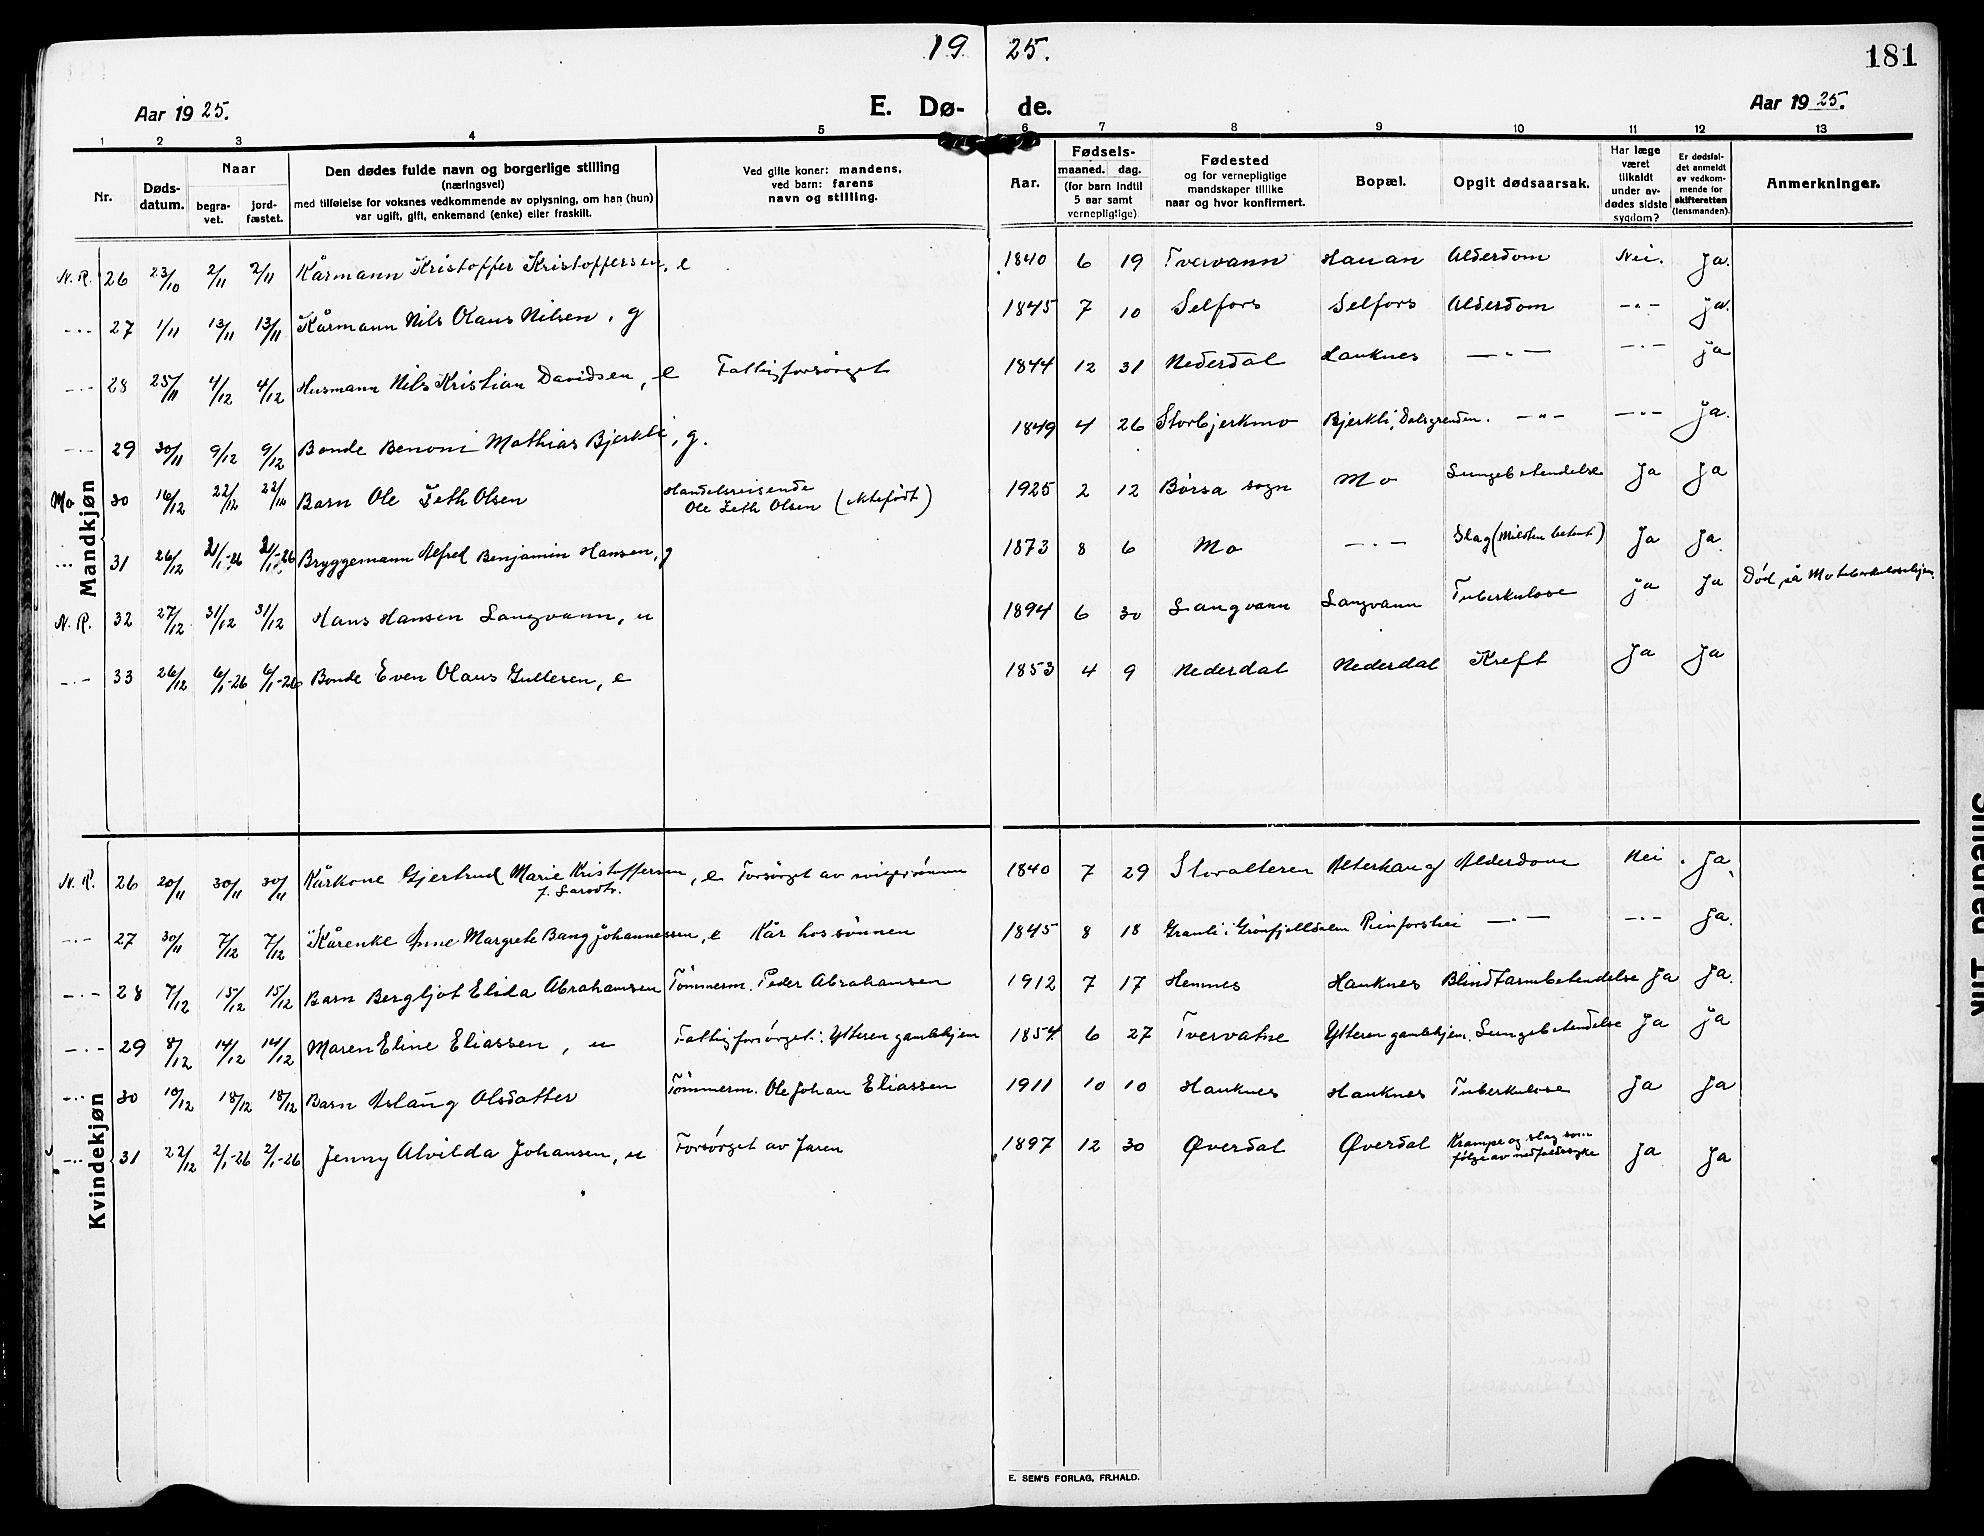 19 25.
181
Aar 1925. E. Dø- de. Aar 1925.
1 2 3 4 5 6 7 8 9 10 11 12 13
Nr. Døds-datum. Naar begra-vet. jord-fæstet. Den dødes fulde navn og borgerlige stilling (næringsvei) med tilføielse for voksnes vedkommende av oplysning, om han (hun) var ugift, gift, enkemand (enke) eller fraskilt. Ved gifte koner: mandens, ved barn: farens navn og stilling. Aar. Fødsels- maaned. dag. (for barn indtil 5 aar samt vernepligtige) Fødested og for vernepligtige mandskaper tillike naar og hvor konfirmert. Bopæl. Opgit dødsaarsak. Har læge været tilkaldt under av-dødes sidste sygdom? Er dødsfal-det anmeldt av vedkom-mende for skifteretten (lensmanden). Anmerkninger.
Mandkjøn
N. R. 26 23/10 2/11 2/11 Kårmann Kristoffer Kristoffersen, e 1840 6 19 Tvervann Hauan Alderdom Nei. Ja.
-"- 27 1/11 13/11 13/11 Kårmann Nils Olaus Nilsen, g 1845 7 10 Selfors Selfors Alderdom -"- Ja.
-"- 28 25/11 4/12 4/12 Husmann Nils Kristian Davidsen, e Fattigforsørget 1844 12 31 Nederdal Hauknes -"- -"- Ja
-"- 29 30/11 9/12 9/12 Bonde Benoni Mathias Bjerkli, g. 1849 4 26 Storbjerkmo Bjerkli, Dalsgrenden. -"- -"- Ja.
Mo 30 16/12 22/12 22/12 Barn Ole Zeth Olsen Handelsreisende Ole Zeth Olsen (ektefødt) 1925 2 12 Børsa sogn Mo Lungebetendelse Ja Ja
-"- 31 26/12 2/1-26 2/1-26 Bryggemann Alfred Benjamin Hansen, g 1873 8 6 Mo -"- Slag Ja Ja.
N. R. 32 27/12 31/12 31/12 Hans Hansen Langvann, u 1894 6 30 Langvann Langvann Tuberkulose Ja Ja Død på Mo tuberkulosehjem.
-"- 33 26/12 6/1-26 6/1-26 Bonde Even Olaus Gullesen, e 1853 4 9 Nederdal Nederdal Kreft Ja Ja
Kvindekjøn
N. R. 26 20/11 30/11 30/11 Kårkone Gjertrud Marie Kristoffersen f. Larsdtr., e Forsørget av svigersønnen 1840 7 29 Storalteren Alterhaug Alderdom Nei. Ja.
-"- 27 30/11 7/12 7/12 Kårenke Anne Margrete Bang Johannessen, e Kår hos sønnen 1845 8 18 Granli i Grønfjelldalen Reinforshei -"- -"- Ja.
-"- 28 7/12 15/12 15/12 Barn Bergljot Elida Abrahamsen Tømmerm. Peder Abrahamsen 1912 7 17 Hemnes Hauknes Blindtarmbetendelse Ja Ja.
-"- 29 8/12 14/12 14/12 Maren Eline Eliassen, u Fattigforsørget: Ytteren gamlehjem 1854 6 27 Tvervatne Ytteren gamlehjem. Lungebetendelse Ja Ja
-"- 30 10/12 18/12 18/12 Barn Aslaug Olsdatter Tømmerm. Ole Johan Eliassen 1911 10 10 Hauknes Hauknes Tuberkulose Ja Ja
-"- 31 22/12 2/1-26 2/1-26 Jenny Alvilda Johansen, u Forsørget av faren 1897 12 30 Øverdal Øverdal Krampe og slag som følge av nedfaldssyke Ja Ja
E. SEM'S FORLAG, FR.HALD.